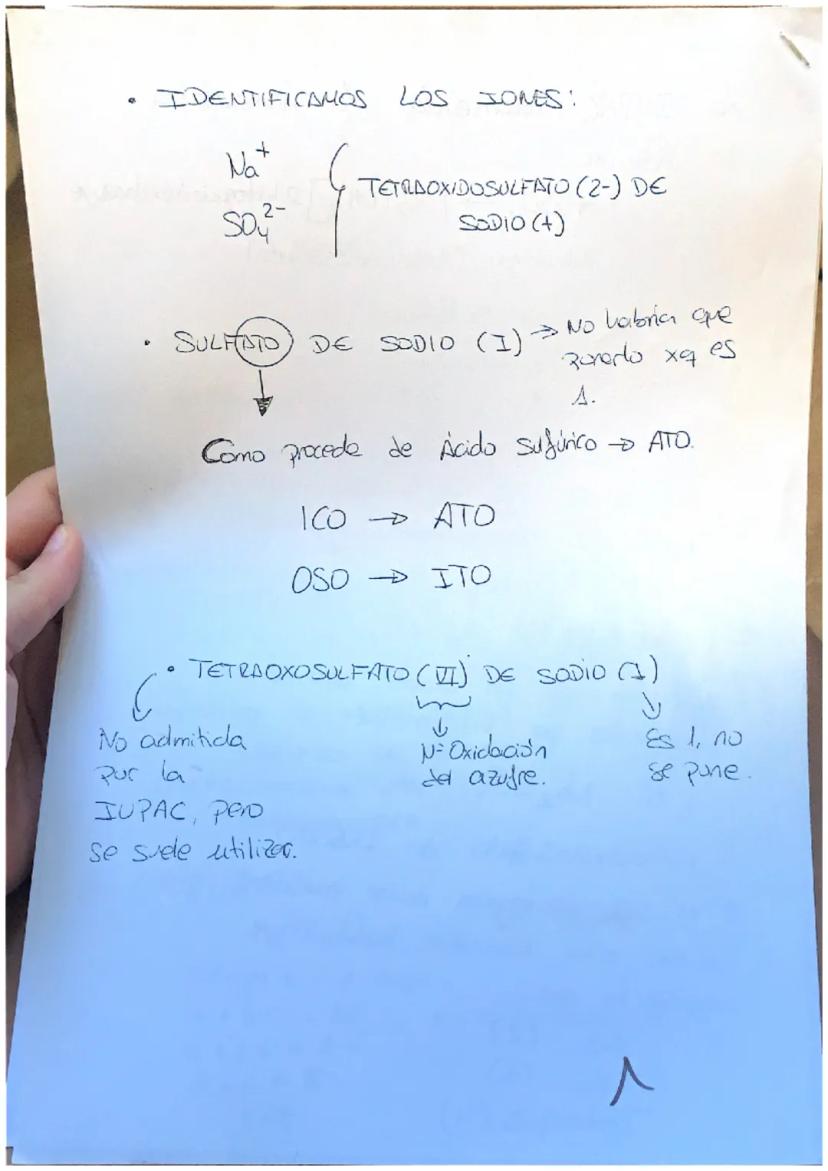 • IDENTIFICAMOS LOS IONES:
Na⁺
SO₄²⁻
TETRAOXIDOSULFATO (2-) DE
SODIO (+)
• SULFATO DE SODIO (I) → No habría que
ponerlo xq es
1.
Como procede de Ácido Sulfúrico → ATO.
ICO → ATO
OSO → ITO
• TETRAOXOSULFATO (VI) DE SODIO (I)
No admitida
por la
IUPAC, pero
se suele utilizar.
Nº Oxidación
del azufre.
Es 1, no
se pone.